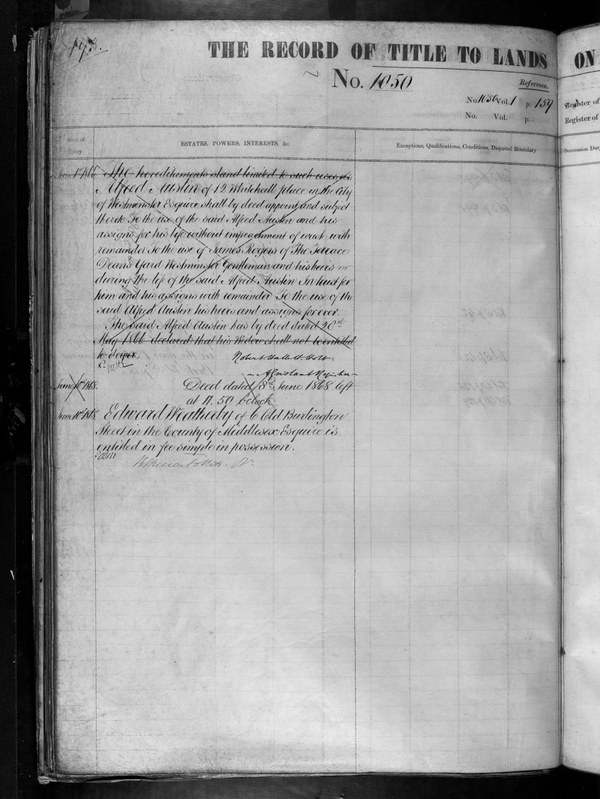 193.
THE RECORD OF TITLE TO LANDS
ON
No. 1050
Reference.
No. 1050 Vol. 1 p. 159
No. Vol. p.
Register of
Register of
ESTATES, POWERS, INTERESTS, &c.
Exceptions, Qualifications, Conditions, Disputed Boundary
The hereditaments stand limited to such uses as
Alfred Austin of 12 Whitehall place in the City
of Westminster Esquire shall by deed appoint and subject
thereto To the use of the said Alfred Austin and his
assigns for his life without impeachment of waste with
remainder To the use of James Rogers of The Terrace
Deans Yard Westminster Gentleman and his heirs
during the life of the said Alfred Austin In trust for
him and his assigns with remainder To the use of the
said Alfred Austin his heirs and assigns for ever.
The said Alfred Austin has by deed dated
May 1866 declared that his Widow shall not be entitled
to dower.
Robert Hallett Holt
Assistant Registrar
June 1868.
Deed dated June 1868 left
at 11.50 o'clock
June 10th 1868
Edward Weatherby of 6 Old Burlington
Street in the County of Middlesex Esquire is
entitled in fee simple in possession.